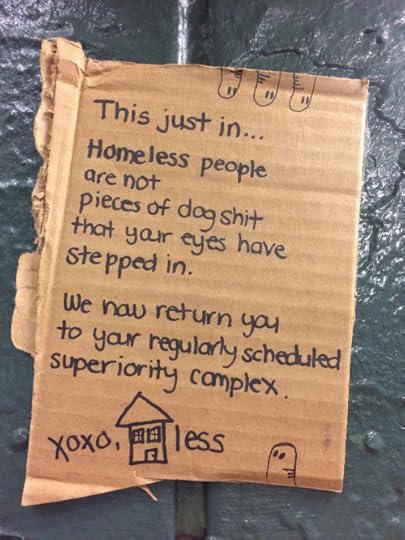 This just in...
Homeless people
are not
pieces of dog shit
that your eyes have
stepped in.
We now return you
to your regularly scheduled
superiority complex.
xoxo, less